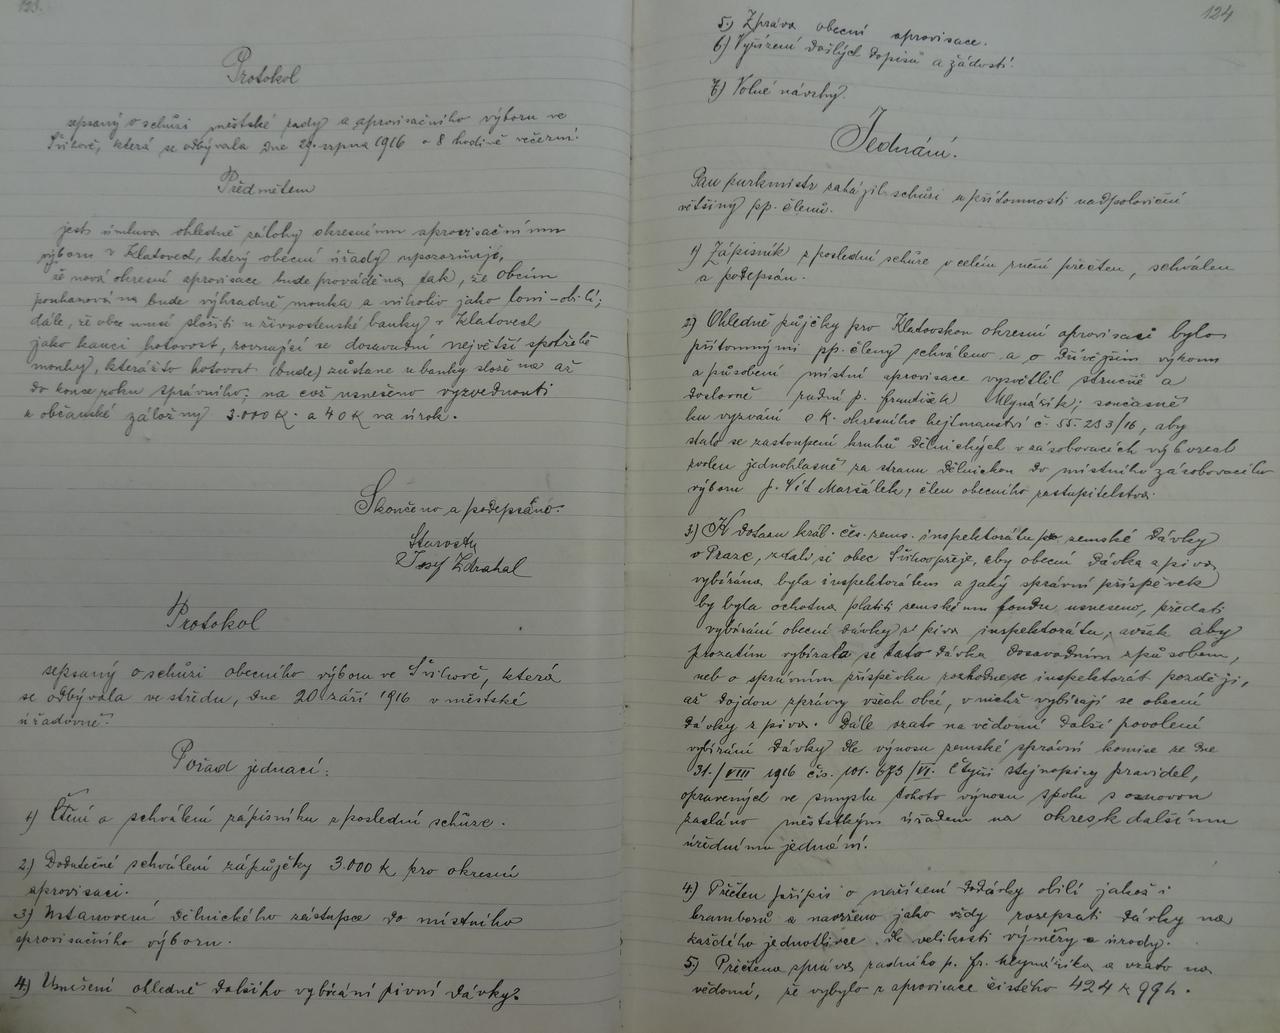 123.
Protokol
sepsaný o schůzi městské rady a aprovisačního výboru ve
Švihově, která se odbývala dne 29. srpna 1916 o 8 hodině večerní.
Předmětem
jest úmluva ohledně zálohy okresnímu aprovisačnímu
výboru v Klatovech, který obecní úřady upozorňuje,
že nová okresní aprovisace bude prováděna tak, že obcím
poukazována bude výhradně mouka a nikoliv jako loni - obilí;
dále, že obce musí složiti u živnostenské banky v Klatovech
jako kauci hotovost, rovnající se dosavadní největší spotřebě
mouky, kterážto hotovost (bude) zůstane u banky složena až
do konce roku správního; na což usneseno vyzvednouti
z občanské záložny 3.000 K. a 40 K na úrok.
Skončeno a podepsáno.
Starosta
Josef Zdrahal
Protokol
sepsaný o schůzi obecního výboru ve Švihově, která
se odbývala ve středu, dne 20 září 1916 v městské
úřadovně.
Pořad jednací:
1) Čtení a schválení zápisníku z poslední schůze.
2) Dodatečné schválení zápůjčky 3.000 K pro okresní
aprovisaci.
3) Ustanovení dělnického zástupce do místního
aprovisačního výboru.
4) Usnešení ohledně dalšího vybírání pivní dávky?
124
5) Zpráva obecní aprovisace.
6) Vyřízení došlých dopisů a žádostí.
7) Volné návrhy.
Jednání.
Pan purkmistr zahájil schůzi v přítomnosti nadpoloviční
většiny pp. členů.
1) Zápisník z poslední schůze v celém znění přečten, schválen
a podepsán.
2) Ohledně půjčky pro Klatovskou okresní aprovisaci bylo
přítomnými pp. členy schváleno a o důvějším výkonu
a působení místní aprovisace vysvětlil stručně a
doslovně radní p. František Mlynařík; současně
ku vyzvání c k. okresního hejtmanství č. 55.233/16, aby
stalo se zastoupení kruhů dělnických v zásobovacích výborech
zvolen jednohlasně za stranu dělnickou do místního zásobovacího
výboru p. Vít Maršálek, člen obecního zastupitelstva.
3) K dotazu král. čes. zems. inspektorátu pro zemské dávky
v Praze, zdali si obec Švihov přeje, aby obecní dávka z piva
vybírána byla inspektorátem a jaký správní příspěvek
by byla ochotna platiti zemskému fondu, usneseno, předati
vybírání obecní dávky z piva inspektorátu, avšak aby
prozatím vybírala se tato dávka dosavadním způsobem,
neb o správním příspěvku rozhodne se inspektorát později,
až dojdou zprávy všech obcí, v nichž vybírají se obecní
dávky z piva. Dále vzato na vědomí další povolení
vybírání dávky dle výnosu zemské správní komise ze dne
31./VIII 1916 čís. 101.673/VI. Čtyři stejnopisy pravidel,
opravených ve smyslu tohoto výnosu spolu s osnovou
zasláno městským úřadem na okres. k dalšímu
úřednímu jednání.
4) Přečten přípis o nařízení dodávky obilí jakož i
bramborů a navrženo jako vždy rozepsati dávky na
každého jednotlivce dle velikosti výměry a úrody.
5) Přečtena zpráva radního p. Fr. Mlynaříka a vzato na
vědomí, že vybylo z aprovisace čistého 424 K 99 h.